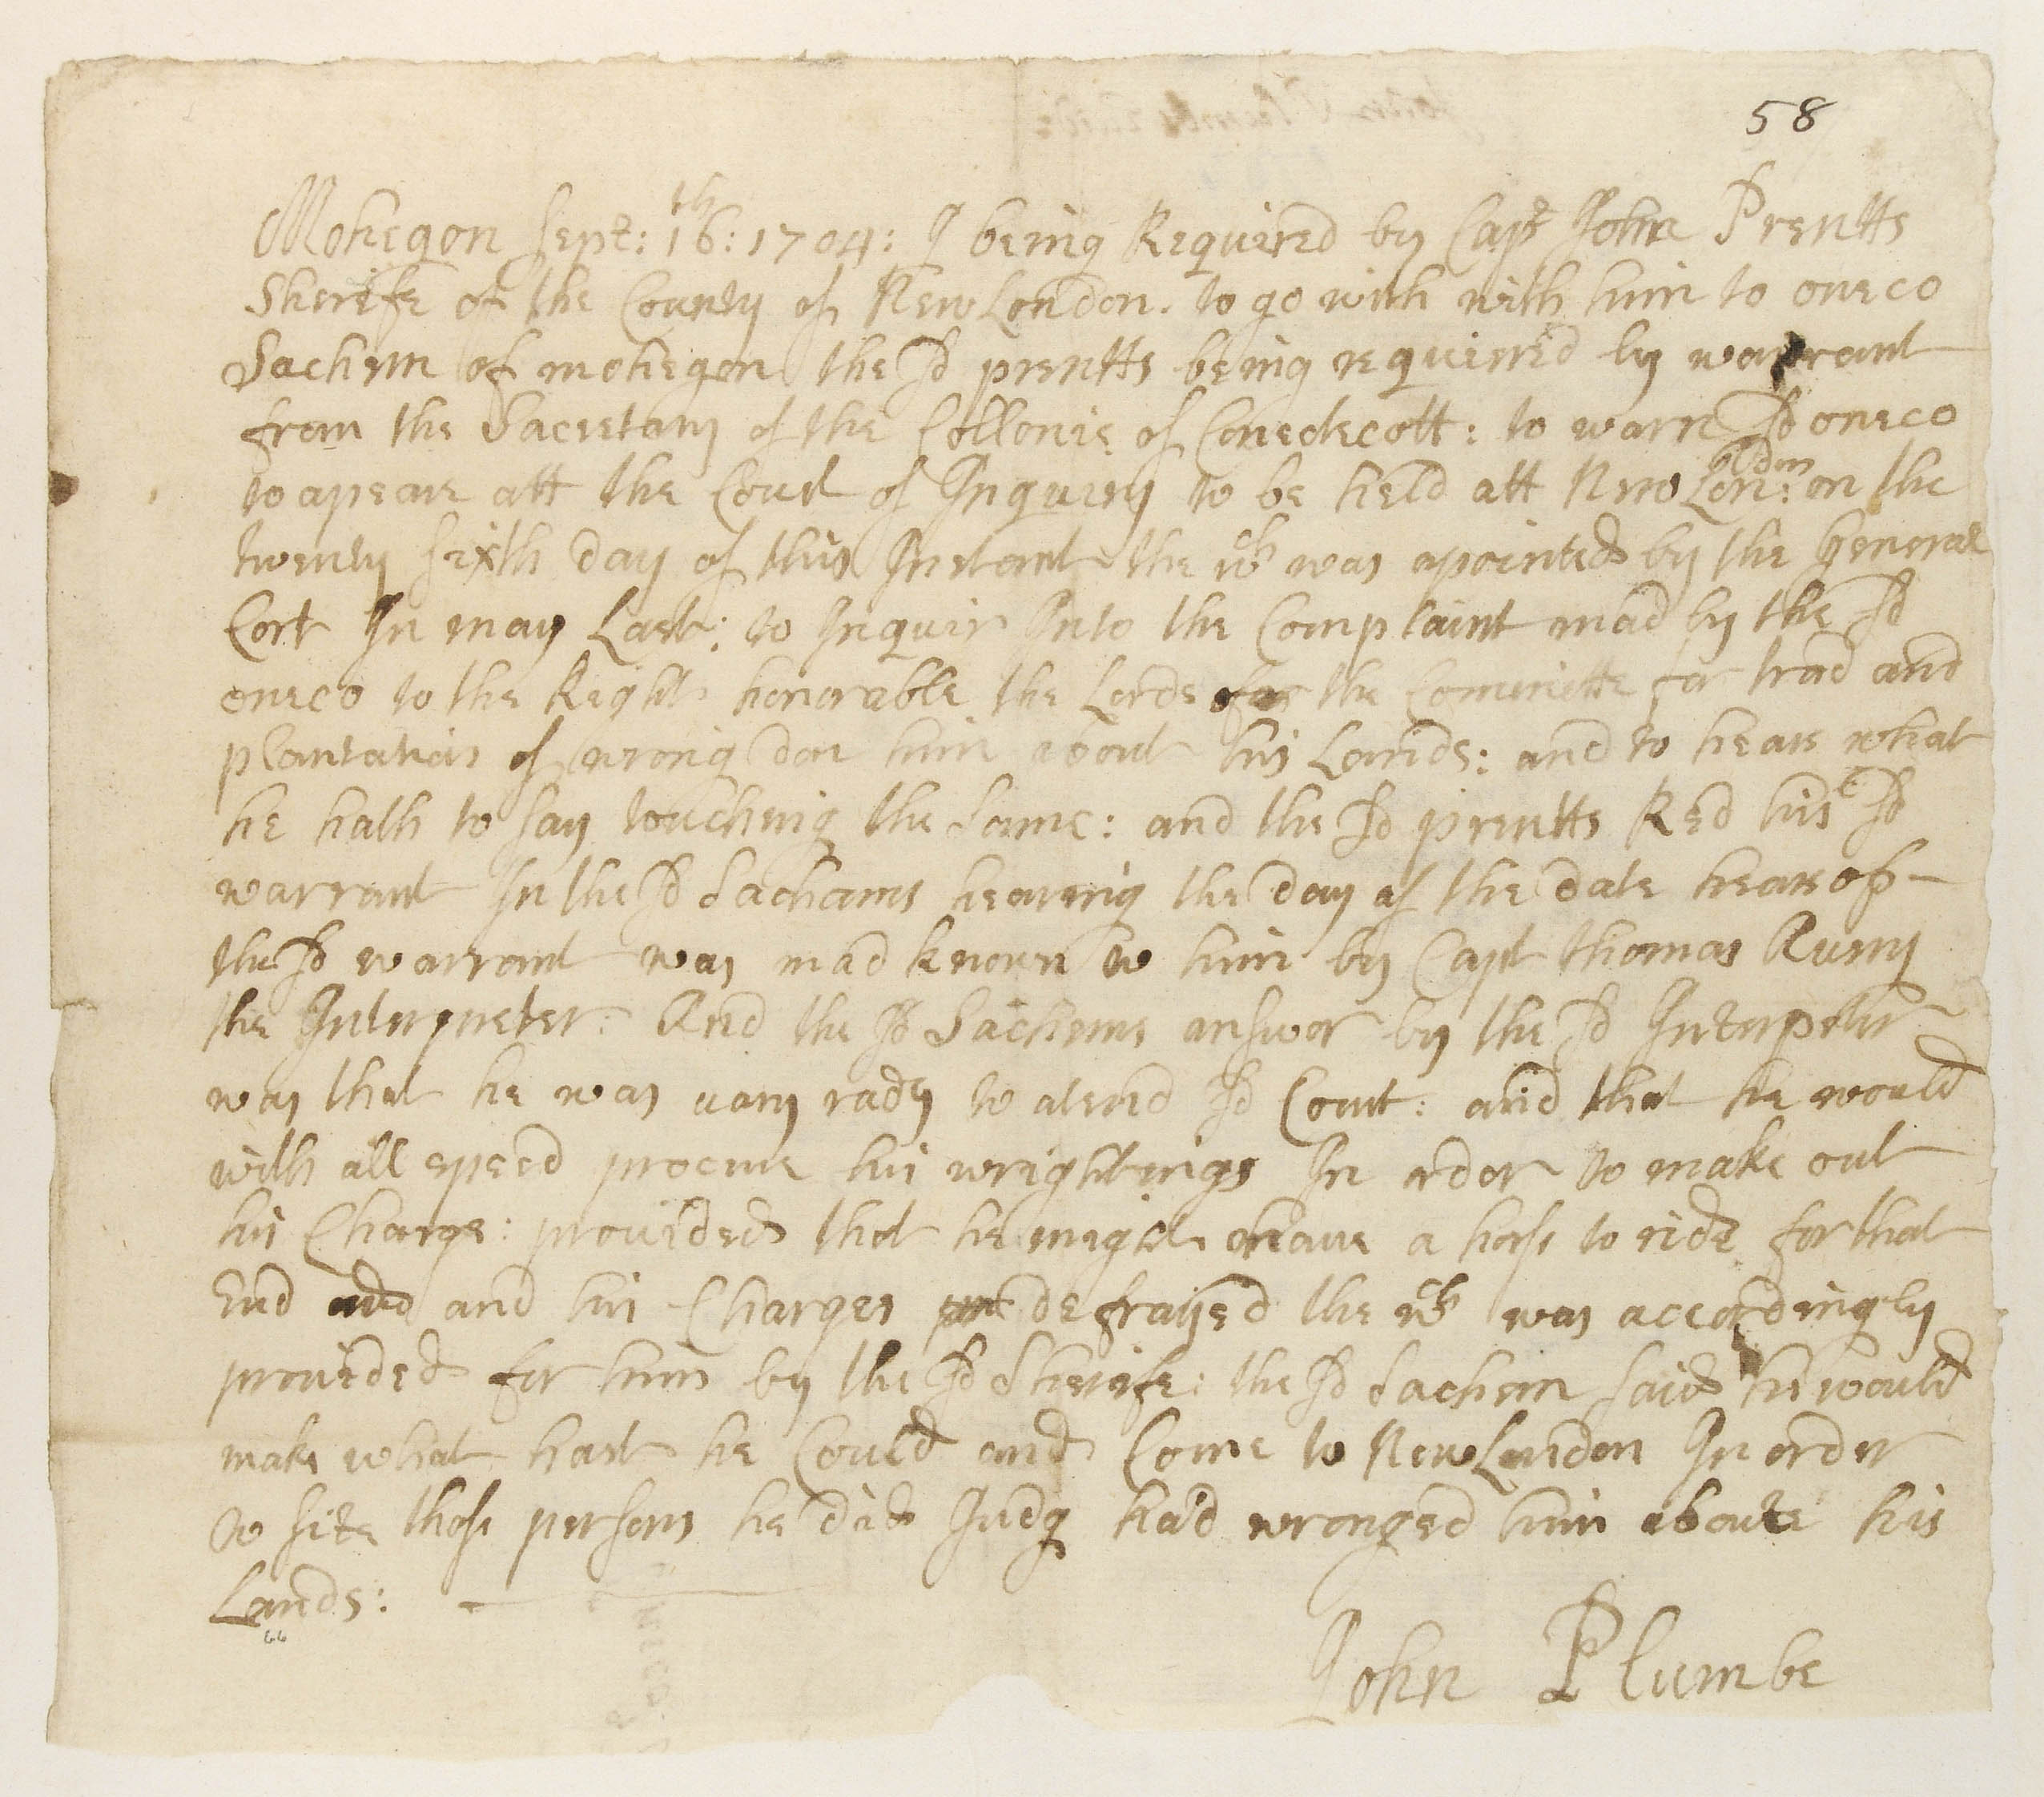 58
Mohegon Sept: 16th: 1704: I being Required by Capt John Prentts
Sherife of the County of New London. to go with with him to oneco
Sachem of mohegon the sd prentts being required by warrant
from the Sacretary of the Collonie of Conedecott: to warn sd oneco
to apeare att the Court of Inquiry to be held att New London on the
twenty sixth day of this Instant the wch was apointed by the General
Cort In may Last: to Inquir Into the Complaint mad by the sd
oneco to the Right honorable the Lords for the Committe for trad and
plantations of wrong don him about his Lands: and to heare what
he hath to say touching the same: and the sd prentts Red his sd
warrant In the sd Sachams hearing the day of the date heareof
the sd warrant was mad known to him by Capt thomas
the Interpreter: And the sd Sachems answor by the sd Interpeter
was that he was vary rady to atend sd Court: and that he would
with all speed procure his wrightings In ordor to make out
his Charge: provided that he might have a horse to ride for that
End and and his Charges defrayed the wch was accordingly
provided for him by the sd Sherife: the sd Sachem said he would
make what hast he Could and Come to New London In order
to site those persons he did Judg had wronged him aboute his
Lands:
66
John Plumbe